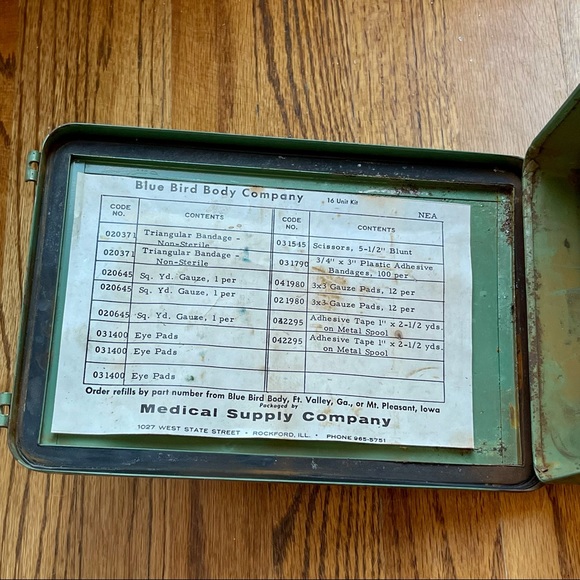 Blue Bird Body Company 16 Unit Kit
NEA
CODE NO. CONTENTS
020371 Triangular Bandage -
Non-Sterile
020371 Triangular Bandage -
Non-Sterile
020645 Sq. Yd. Gauze, 1 per
020645 Sq. Yd. Gauze, 1 per
020645 Sq. Yd. Gauze, 1 per
031400 Eye Pads
031400 Eye Pads
031400 Eye Pads
CODE NO. CONTENTS
031545 Scissors, 5-1/2" Blunt
031790 3/4" x 3" Plastic Adhesive
Bandages, 100 per
041980 3x3 Gauze Pads, 12 per
021980 3x3 Gauze Pads, 12 per
042295 Adhesive Tape 1" x 2-1/2 yds.
on Metal Spool
042295 Adhesive Tape 1" x 2-1/2 yds.
on Metal Spool
Order refills by part number from Blue Bird Body, Ft. Valley, Ga., or Mt. Pleasant, Iowa
Packaged by
Medical Supply Company
1027 WEST STATE STREET • ROCKFORD, ILL. • PHONE 965-5751